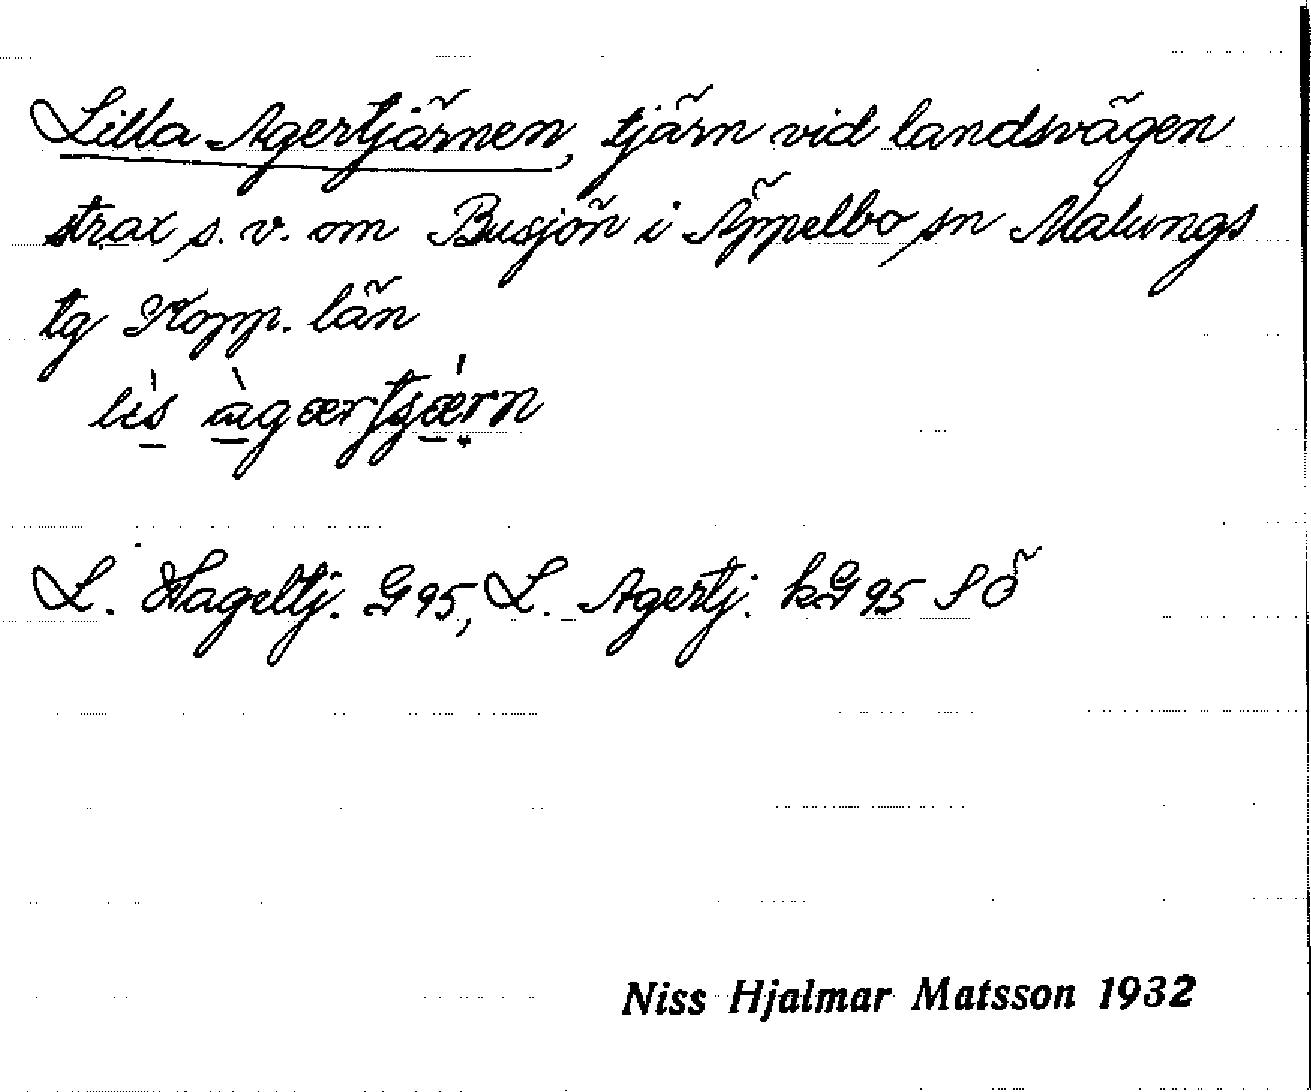 Lilla Agertjärnen, tjärn vid landsvägen
strax s.v. om Busjön i Äppelbo sn Malungs
tg Kopp. län
L. Hageltj. G95, L. Agertj. kG95 SÖ
Niss Hjalmar Matsson 1932